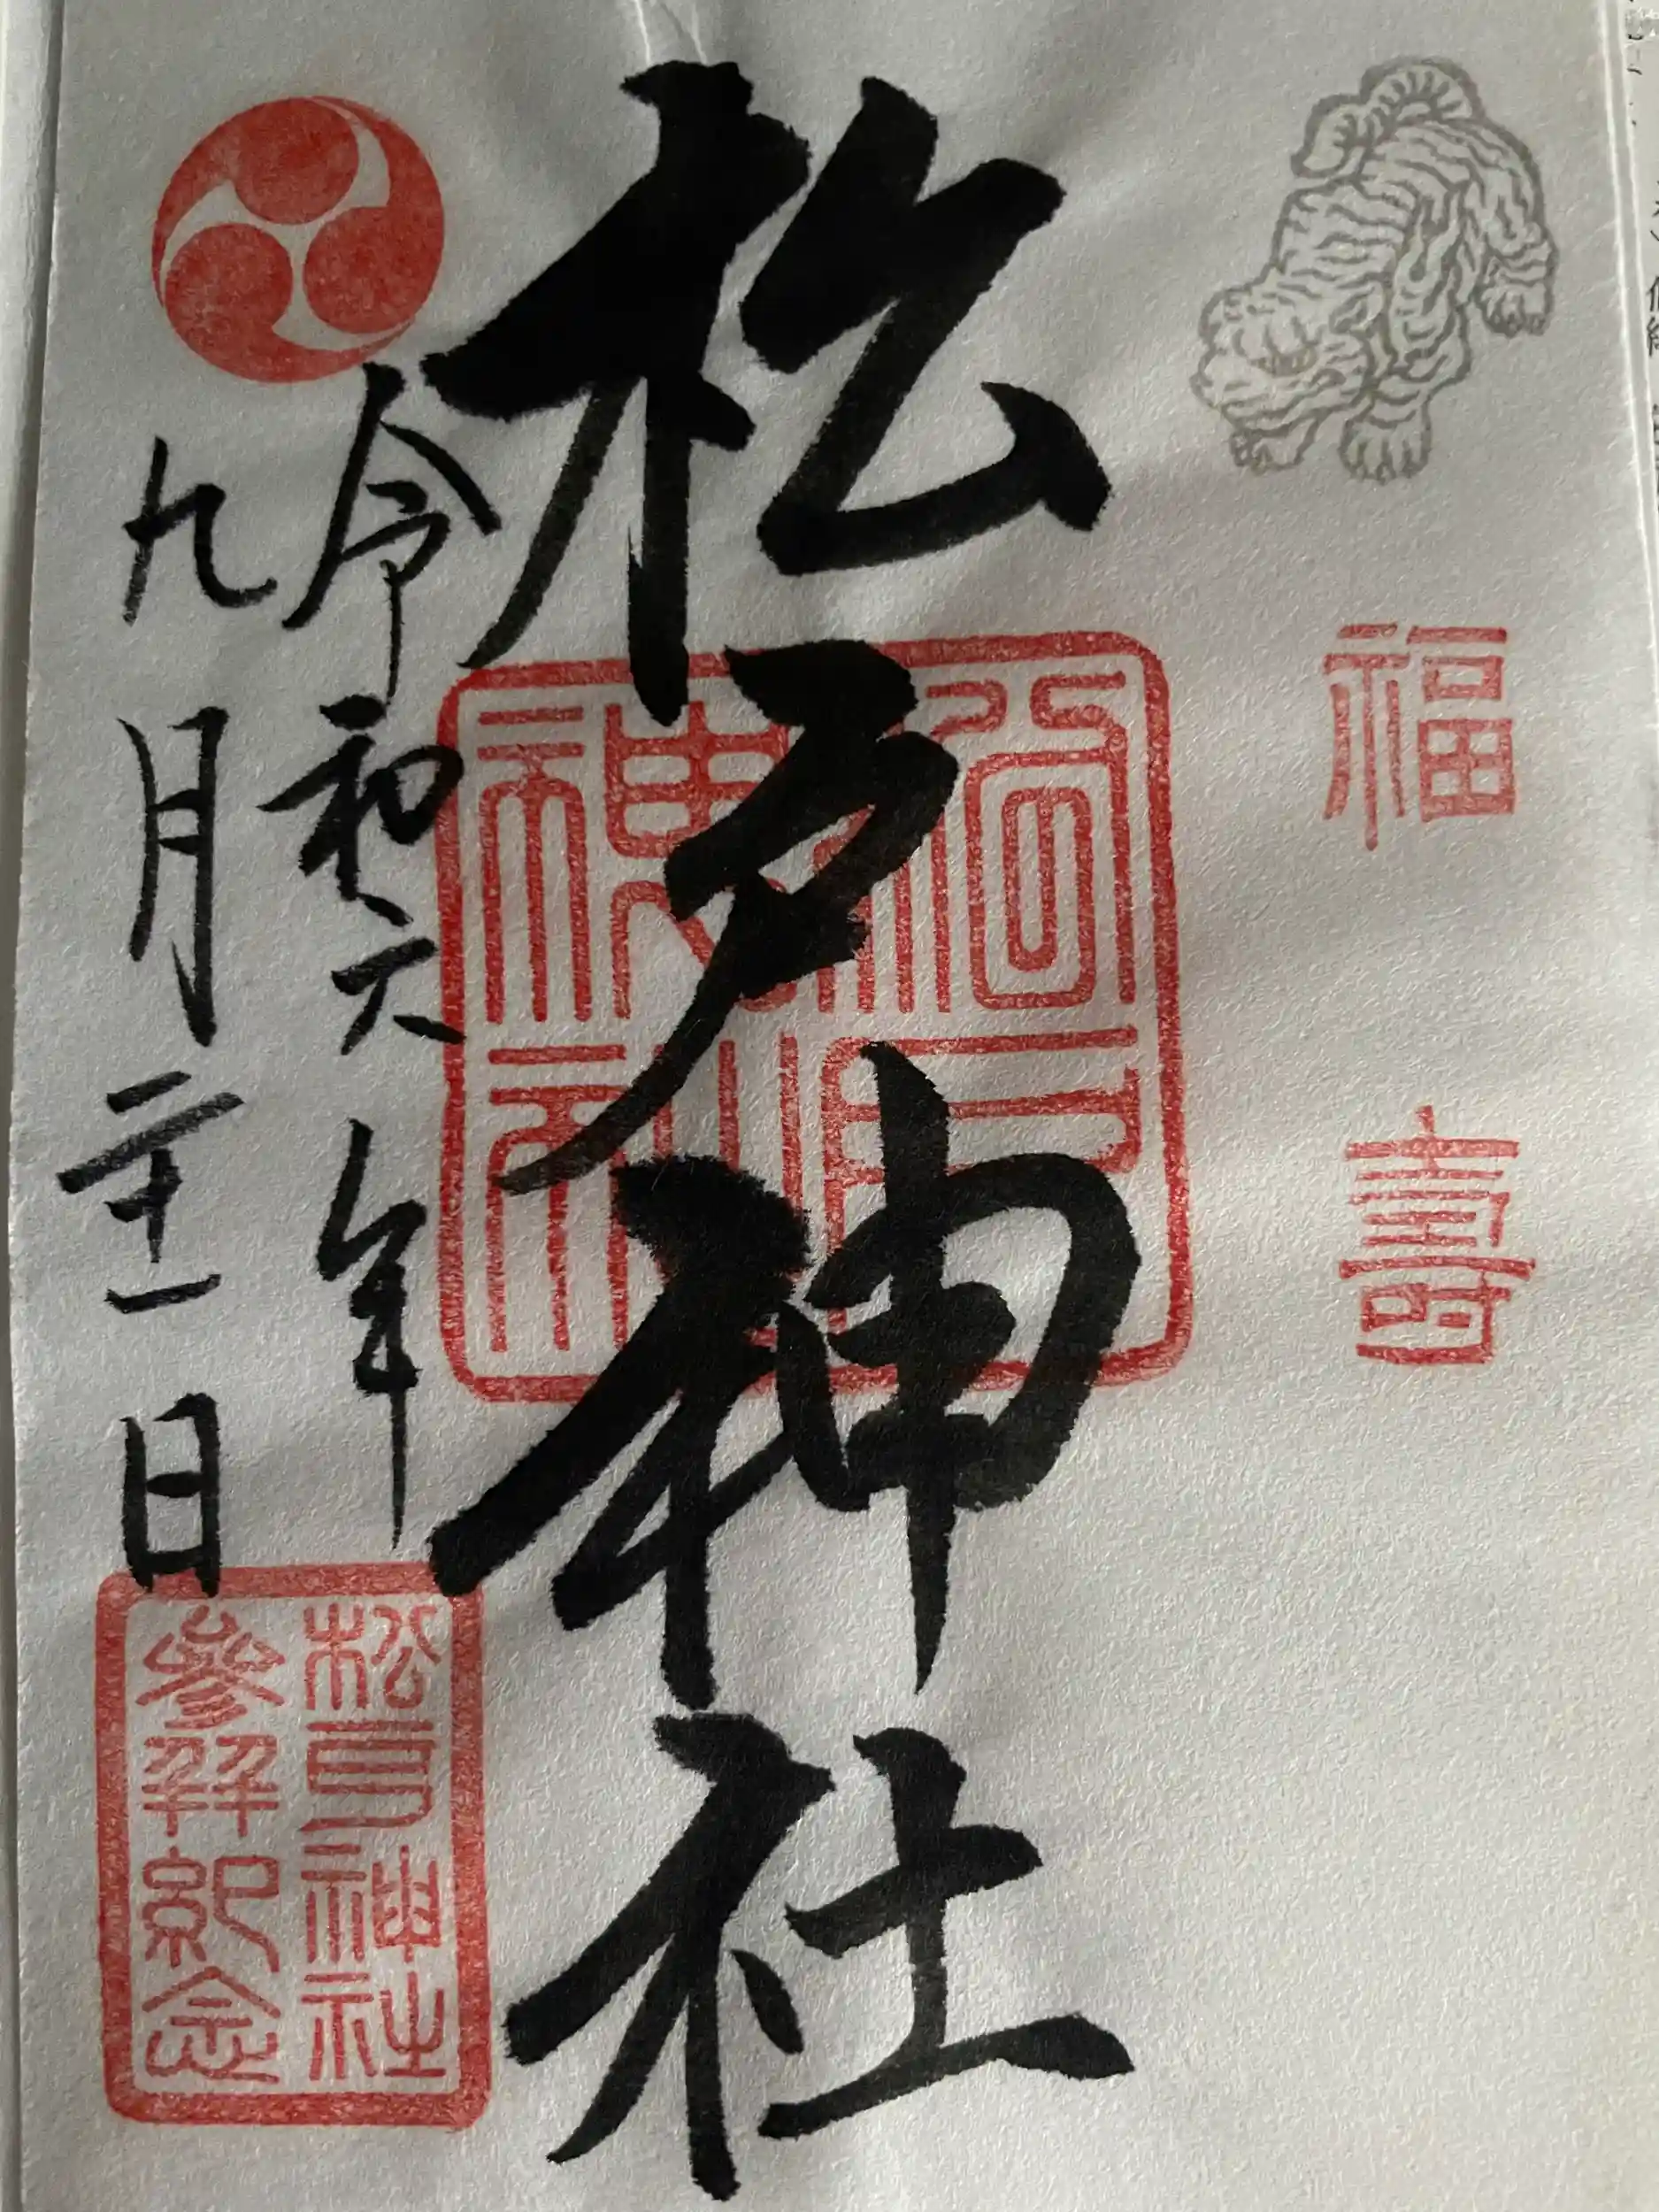 福壽
松戸神社
松戸
神社
令和六年
九月二十一日
松戸神社
參拜紀念